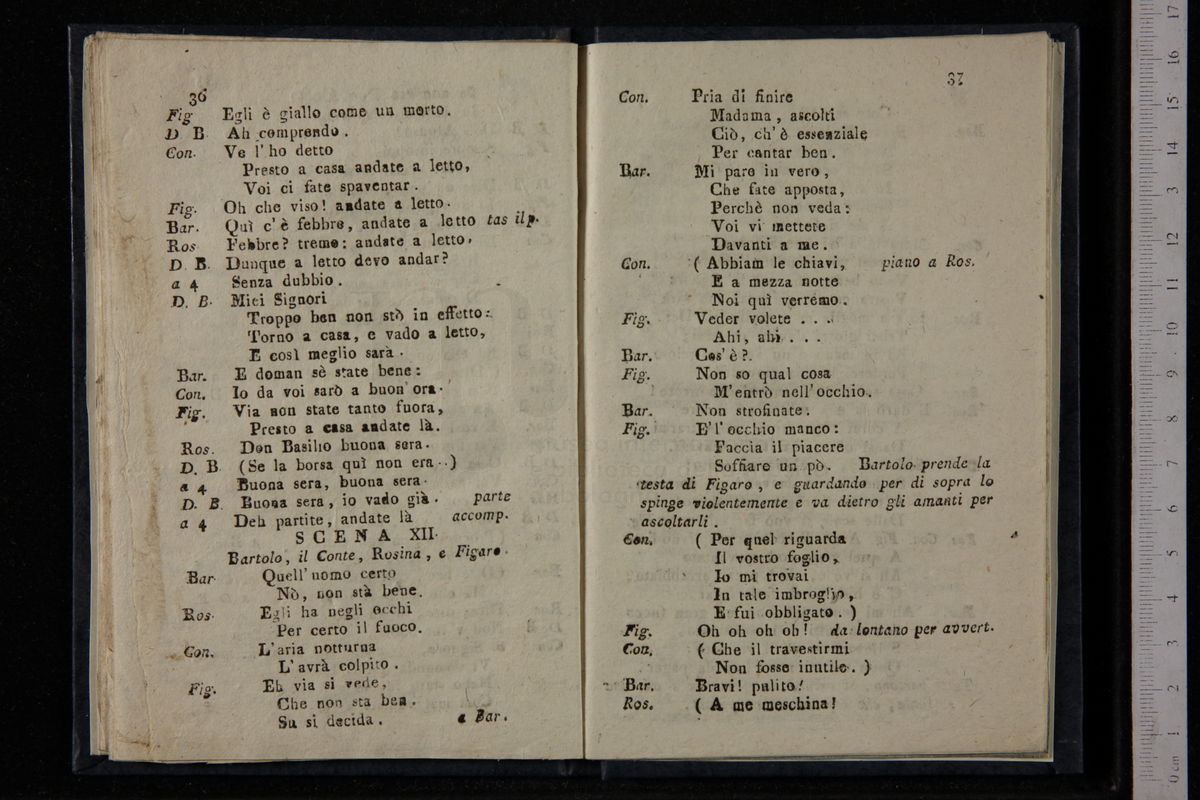 36
Fig. Egli è giallo come un morto.
D B Ah comprendo.
Con. Ve l'ho detto
Presto a casa andate a letto,
Voi ci fate spaventar.
Fig. Oh che viso! andate a letto.
Bar. Quì c'è febbre, andate a letto tas il p.
Ros Febbre? tremo: andate a letto,
D. B. Dunque a letto devo andar?
a 4 Senza dubbio.
D. B. Miei Signori
Troppo ben non stò in effetto:
Torno a casa, e vado a letto,
E così meglio sarà.
Bar. E doman sè state bene:
Con. Io da voi sarò a buon'ora.
Fig. Via non state tanto fuora,
Presto a casa andate là.
Ros. Don Basilio buona sera.
D. B. (Se la borsa quì non era..)
a 4 Buona sera, buona sera.
D. B. Buona sera, io vado già. parte
a 4 Deh partite, andate là accomp.
SCENA XII.
Bartolo, il Conte, Rosina, e Figaro.
Bar. Quell'uomo certo
Nò, non stà bene.
Ros. Egli ha negli occhi
Per certo il fuoco.
Con. L'aria notturna
L'avrà colpito.
Fig. Eh via si vede,
Che non sta ben.
Su si decida. a Bar.
37
Con. Pria di finire
Madama, ascolti
Ciò, ch'è essenziale
Per cantar ben.
Bar. Mi pare in vero,
Che fate apposta,
Perchè non veda:
Voi vi mettete
Davanti a me.
Con. (Abbiam le chiavi, piano a Ros.
E a mezza notte
Noi quì verremo.
Fig. Veder volete . . .
Ahi, ahi . . .
Bar. Cos'è?
Fig. Non so qual cosa
M'entrò nell'occhio.
Bar. Non strofinate.
Fig. E' l'occhio manco:
Faccia il piacere
Soffiare un pò. Bartolo prende la
testa di Figaro, e guardando per di sopra lo
spinge violentemente e va dietro gli amanti per
ascoltarli.
Con. (Per quel riguarda
Il vostro foglio,
Io mi trovai
In tale imbroglio,
E fui obbligato.)
Fig. Oh oh oh oh! da lontano per avvert.
Con. (Che il travestirmi
Non fosse inutile.)
Bar. Bravi! pulito!
Ros. (A me meschina!
0 cm 1 2 3 4 5 6 7 8 9 10 11 12 13 14 15 16 17